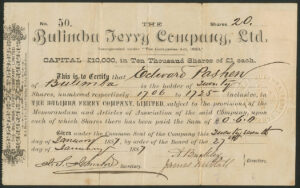 No. 50. THE Shares 20.
Bulimba Ferry Company, Ltd.
Incorporated under "The Companies Act, 1863."
CAPITAL £10,000, in Ten Thousand Shares of £1 each.
This is to Certify that Edward Pashen
of Bulimba is the holder of Twenty
Shares, numbered respectively 1706 to 1725 Inclusive, in
THE BULIMBA FERRY COMPANY, LIMITED, subject to the provisions of the
Memorandum and Articles of Association of the said Company, upon
each of which Shares there has been paid the Sum of
Given under the Common Seal of the Company this Twenty seventh
day of January 1887, by order of the Board of the 27th
day of January 1887
Secretary.